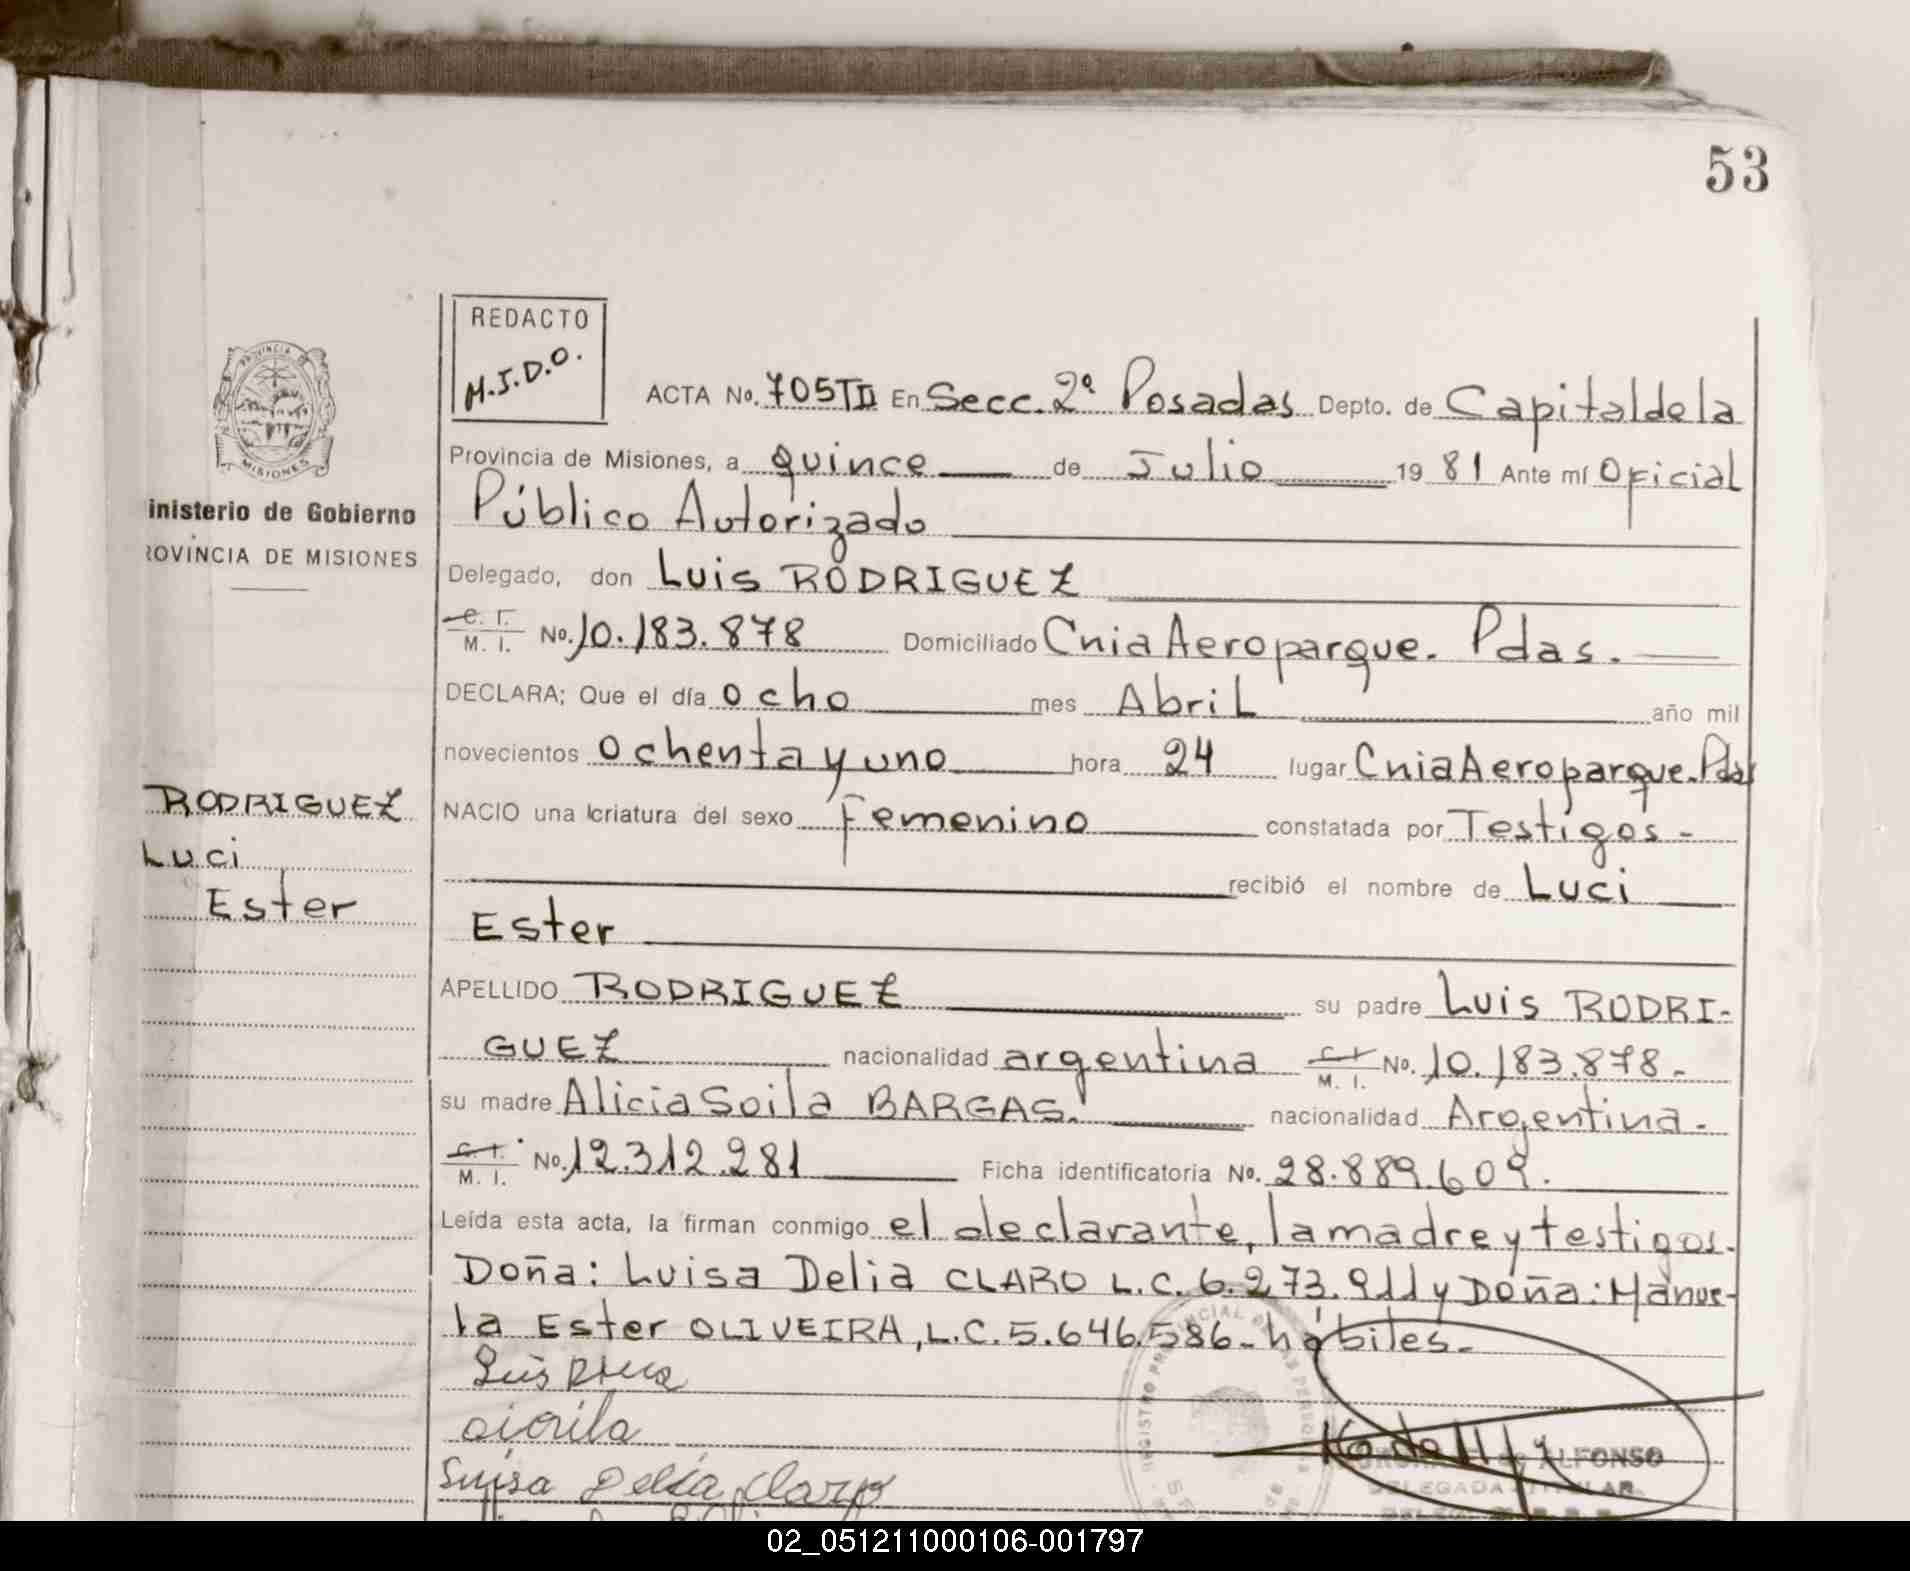 53
REDACTO
M.J.D.O.
ACTA No. 705TII En Secc. 2ª Posadas Depto. de Capital de la
Provincia de Misiones, a quince de Julio 19 81 Ante mí Oficial
Público Autorizado
Delegado, don Luis RODRIGUEZ
C. I. M. I. No. 10.183.878 Domiciliado Cnia Aeroparque. Pdas.
DECLARA; Que el día ocho mes Abril año mil
novecientos ochenta y uno hora 24 lugar Cnia Aeroparque. Pdas
NACIO una criatura del sexo Femenino constatada por Testigos -
recibió el nombre de Luci
Ester
APELLIDO RODRIGUEZ su padre Luis RODRI-
GUEZ nacionalidad argentina C. I. M. I. No. 10.183.878.-
su madre Alicia Soila BARGAS. nacionalidad Argentina.-
C. I. M. I. No. 12.312.281 Ficha identificatoria No. 28.889.609.
Leída esta acta, la firman conmigo el declarante, la madre y testigos.
Doña: Luisa Delia CLARO L.C. 6.273.911 y Doña: Manue-
la Ester OLIVEIRA, L.C. 5.646.586 - hábiles.-
Luisa Delia Claro
ALFONSO
DELEGADA TITULAR
PROVINCIA DE
MISIONES
inisterio de Gobierno
ROVINCIA DE MISIONES
RODRIGUEZ
Luci
Ester
02_051211000106-001797